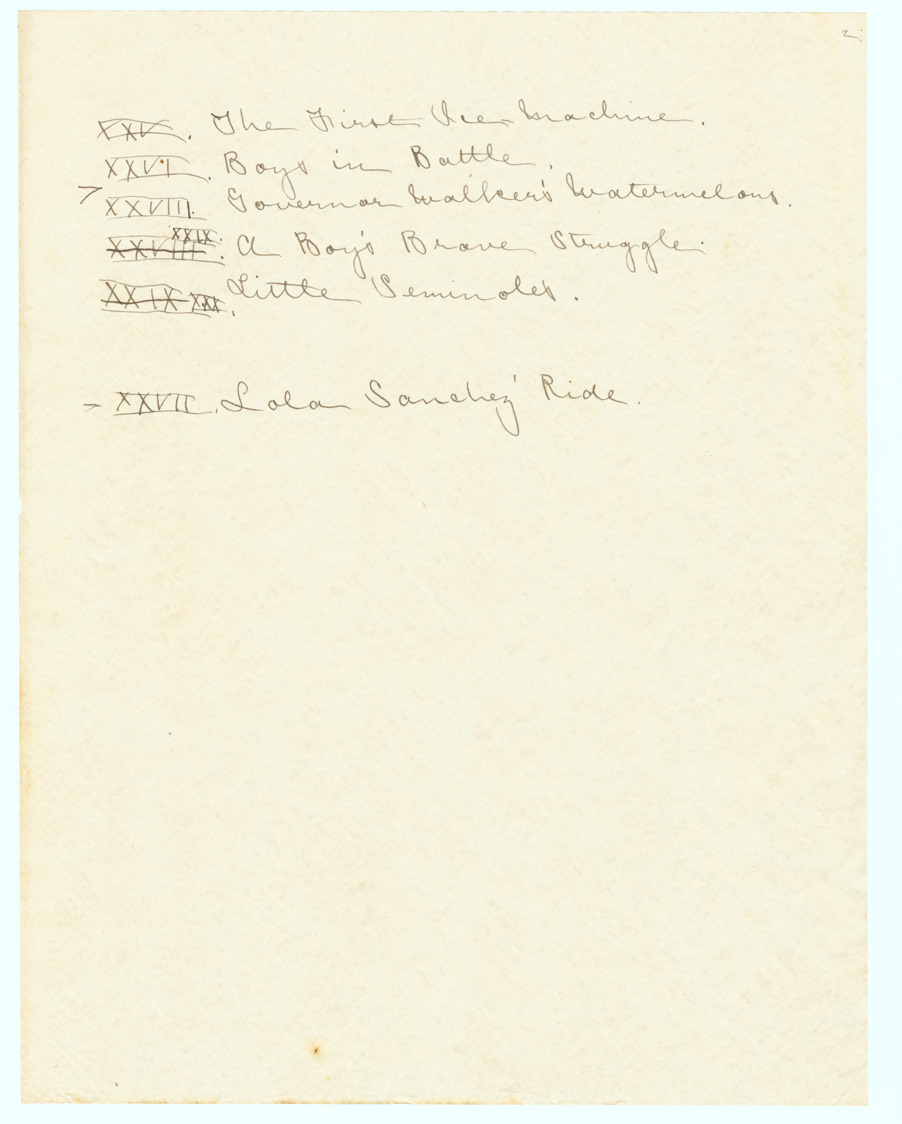 2
XXV. The First Ice Machine.
XXVI. Boys in Battle.
> XXVIII. Governor Walker's Watermelons.
XXVIII XXIX. A Boy's Brave Struggle.
XXIX XXX. Little Seminoles.
> XXVII. Lola Sanchez' Ride.